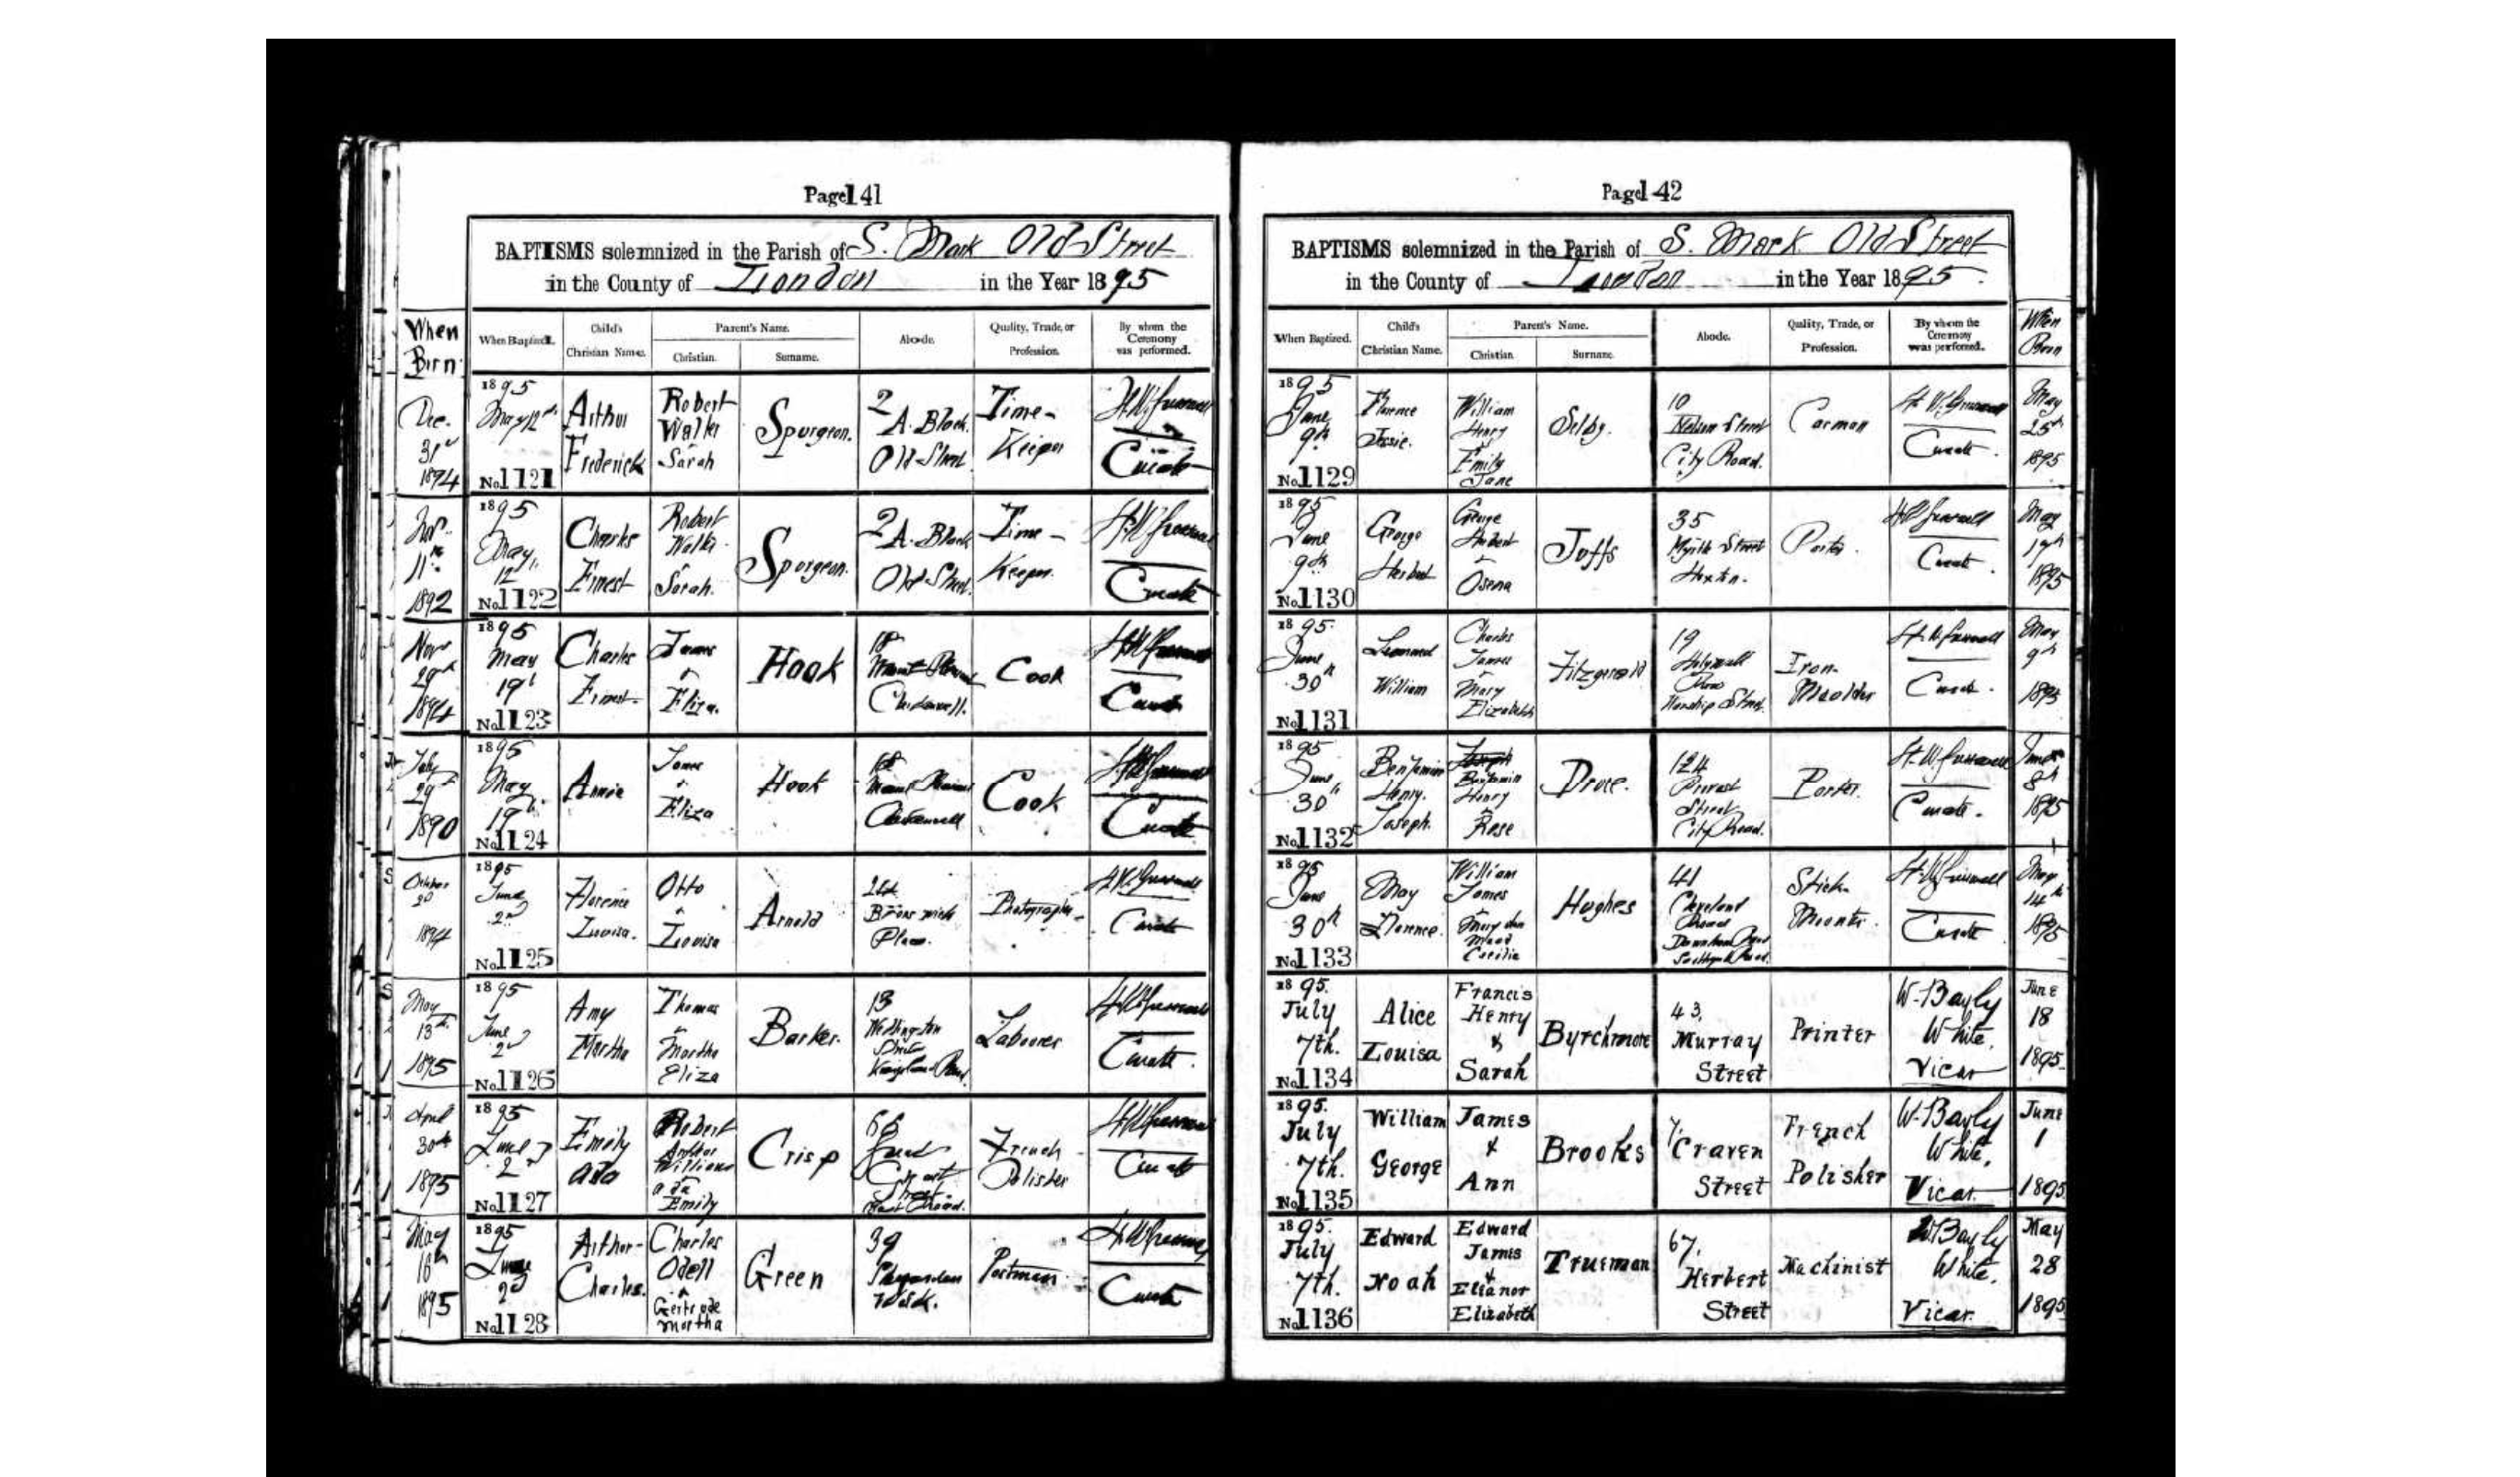 Page 141
BAPTISMS solemnized in the Parish of S. Mark Old Street
in the County of London in the Year 1895
When Born
When Baptized.
Child's Christian Name.
Parent's Name.
Christian.
Surname.
Abode.
Quality, Trade, or Profession.
By whom the Ceremony was performed.
Dec. 31st 1894
1895 May 12th
No. 1121
Arthur Frederick
Robert Walter Sarah
Spurgeon.
2 A. Block. Old Street.
Time-Keeper
Curate
11th 1892
1895 May 12
No. 1122
Charles Ernest
Robert Walter & Sarah.
Spurgeon.
2 A. Block Old Street.
Time-Keeper.
Curate
Nov 29th 1894
1895 May 19th
No. 1123
Charles Ernest
James & Eliza.
Hook
18 Mount Pleasant Clerkenwell.
Cook
Curate
July 29th 1890
1895 May 19th
No. 1124
Annie
James & Eliza
Hook
18 Mount Pleasant Clerkenwell
Cook
Curate
October 2nd 1894
1895 June 2nd
No. 1125
Florence Louisa.
Otto & Louisa
Arnold
Brunswick Place.
Photographer
Curate
May 13th 1895
1895 June 2nd
No. 1126
Amy Martha
Thomas & Martha Eliza
Barker.
13 Wellington Street Kingsland Road.
Labourer
Curate.
April 30th 1895
1895 June 2
No. 1127
Emily Ada
Robert Arthur William & Ada Emily
Crisp
66 Court Street
French Polisher
Curate
May 16th 1895
1895 June 2nd
No. 1128
Arthur Charles.
Charles Odell & Gertrude Martha
Green
39 Shepherdess Walk.
Postman
Curate
Page 142
BAPTISMS solemnized in the Parish of S. Mark Old Street
in the County of London in the Year 1895.
When Baptized.
Child's Christian Name.
Parent's Name.
Christian
Surname.
Abode.
Quality, Trade, or Profession.
By whom the Ceremony was performed.
When Born
1895 June 9th
No. 1129
Florence Jessie.
William Henry & Emily Jane
Selby.
10 Nelson Street City Road.
Carman
Curate.
May 25th 1895
1895 June 9th
No. 1130
George Herbert
George Herbert & Osena
Joffs
35 Myrtle Street Hoxton.
Porter.
Curate.
May 19th 1895
1895. June 30th
No. 1131
William
Charles James & Mary Elizabeth
Fitzgerald
19 Holywell Row Worship Street.
Iron-Moulder
Curate.
May 9th 1895
1895 June 30th
No. 1132
Benjamin Henry. Joseph.
Joseph Benjamin Henry & Rose
Druce.
124 Provost Street City Road.
Porter.
Curate.
June 8th 1895
1895 June 30th
No. 1133
May Florence.
William James & Mary Ann Maud Cecilia
Hughes
41 Cleveland Road Downham Road Southgate Road.
Stick-Mounter.
Curate
May 14th 1895
1895. July 7th.
No. 1134
Alice Louisa
Francis Henry & Sarah
Byrchmore
43, Murray Street
Printer
W. Bayly White, Vicar
June 18 1895
1895. July 7th.
No. 1135
William George
James & Ann
Brooks
7, Craven Street
French Polisher
W. Bayly White, Vicar.
June 1 1895
1895. July 7th.
No. 1136
Edward Noah
Edward James & Eleanor Elizabeth
Trueman
67, Herbert Street
Machinist
W. Bayly White, Vicar.
May 28 1895